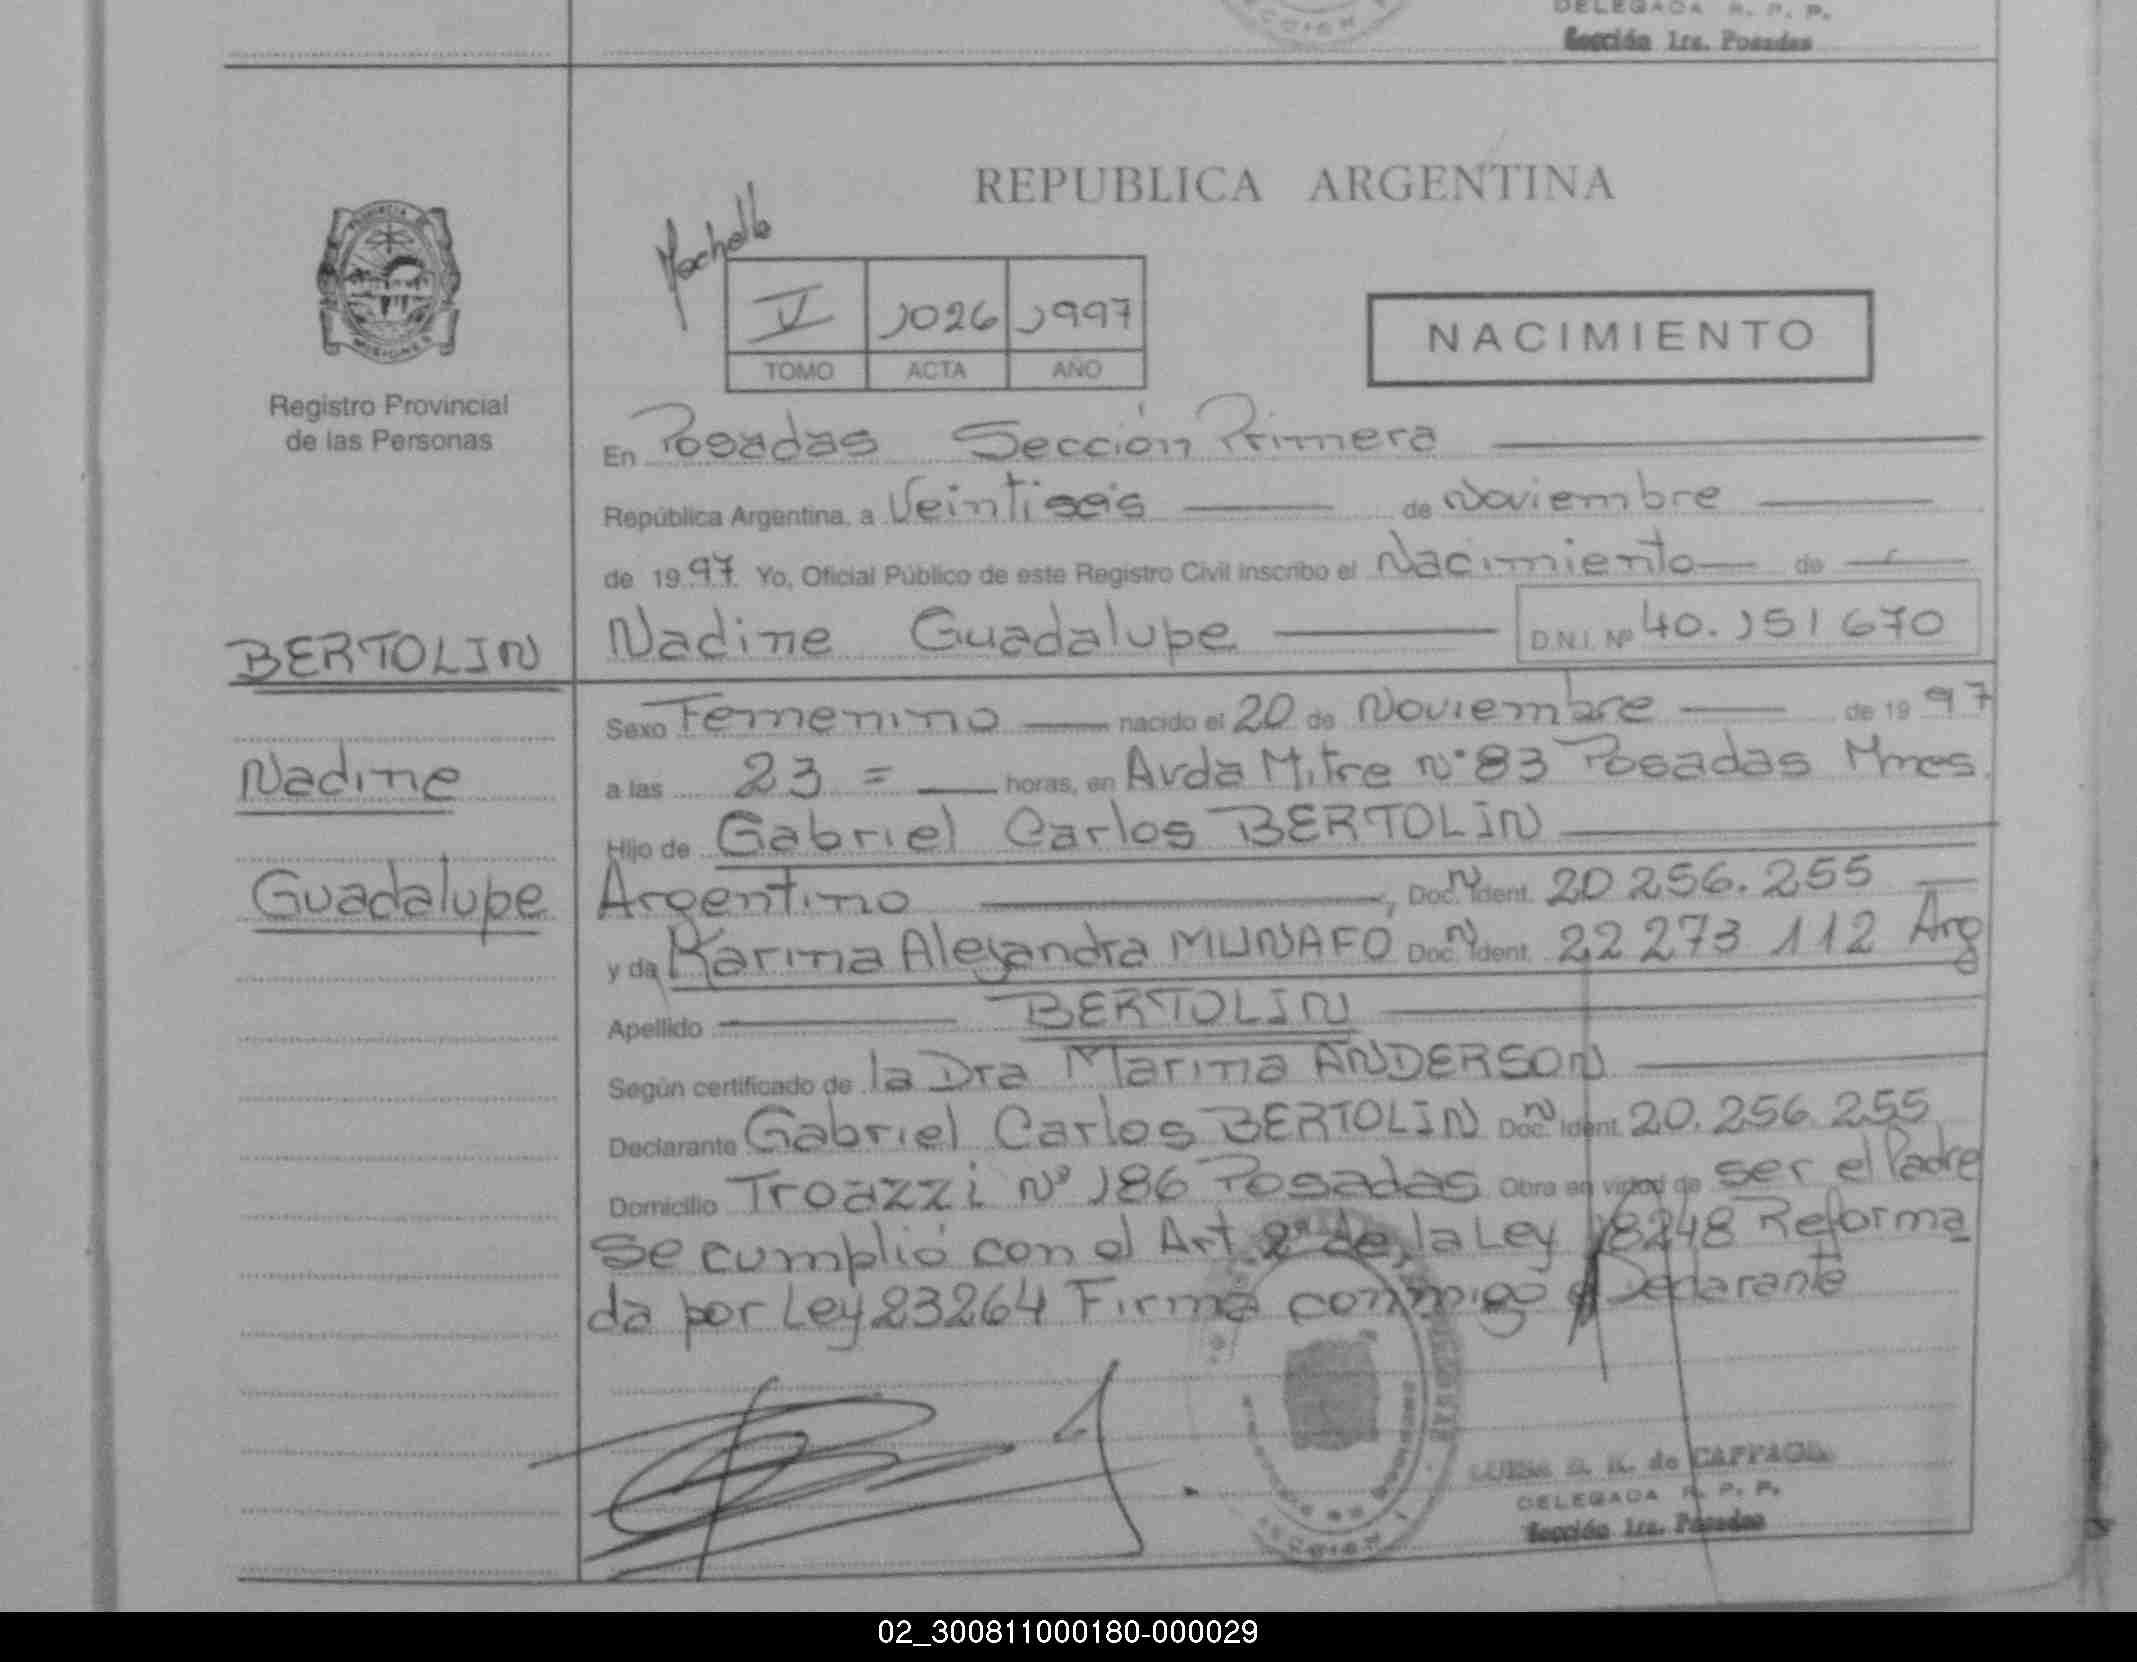 DELEGADA R. P. P.
Sección 1ra. Posadas
REPUBLICA ARGENTINA
PROVINCIA DE
MISIONES
V 1026 1997
TOMO ACTA AÑO
NACIMIENTO
Registro Provincial
de las Personas
En Posadas Sección Primera
República Argentina, a Veintiseis de Noviembre
de 1997. Yo, Oficial Público de este Registro Civil inscribo el Nacimiento de
BERTOLIN
Nadine Guadalupe D.N.I. Nº 40.151670
Sexo Femenino nacido el 20 de Noviembre de 1997
Nadine
a las 23 = horas, en Avda Mitre Nº 83 Posadas Mnes.
Hijo de Gabriel Carlos BERTOLIN
Guadalupe
Argentino, Doc. N Ident. 20 256.255
y da Karina Alejandra MUNAFO Doc. N Ident. 22 273 112 Arg
Apellido BERTOLIN
Según certificado de la Dra Marina ANDERSON
Declarante Gabriel Carlos BERTOLIN Doc. N Ident. 20.256.255
Domicilio Troazzi Nº 186 Posadas Obra en virtud de ser el Padre
Se cumplió con el Art 2º de la Ley 18248 Reforma
da por Ley 23264 Firma conmigo el Declarante
de CAFFAGNI
DELEGADA R. P. P.
Sección 1ra. Posadas
02_300811000180-000029